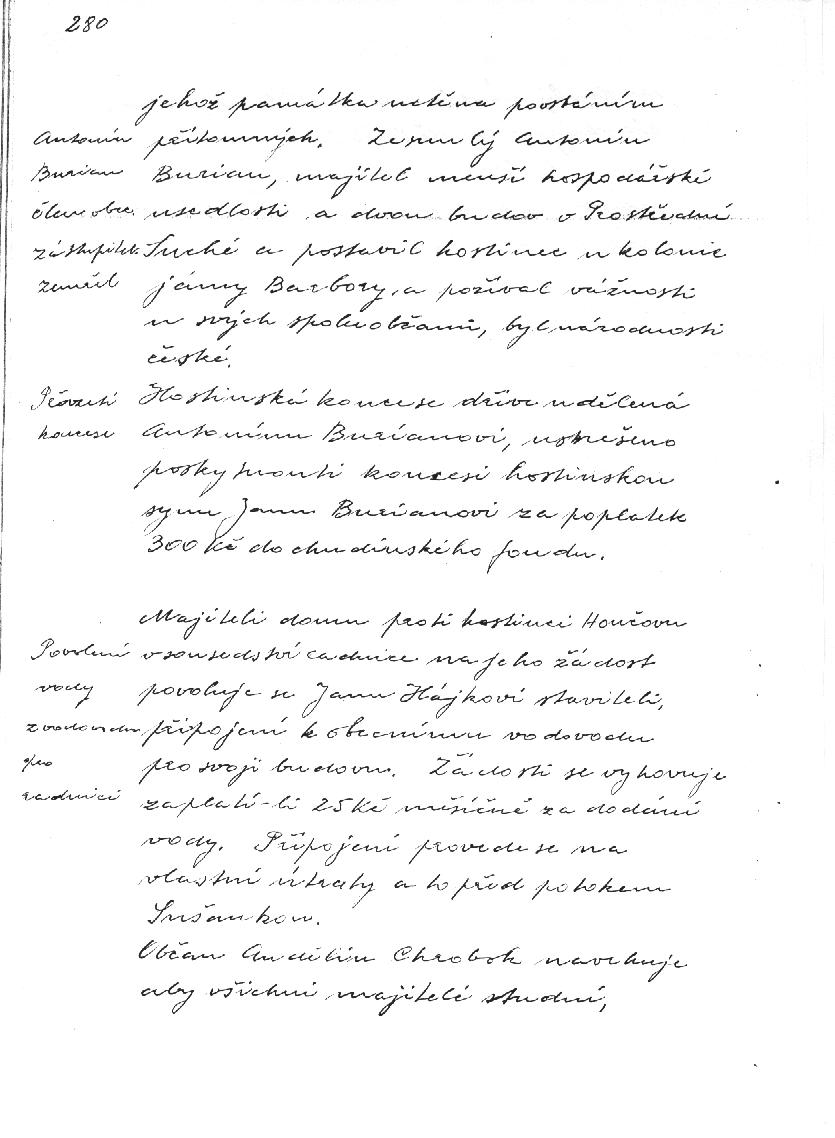 280
jehož památka uctěna povstáním
Antonín přítomných. Zesnulý Antonín
Burian Burian, majitel menší hospodářské
člen obec. usedlosti a dvou budov v Prostřední
zástupitel. Suché a postavil hostinec u kolonie
zemřel jámy Barbory, a požíval vážnosti
u svých spoluobčanů, byl národnosti
české.
Převzetí Hostinská koncese dříve udělená
koncese Antonínu Burianovi, usnešeno
poskytnouti koncesi hostinskou
synu Janu Burianovi za poplatek
300 Kč do chudinského fondu.
Majiteli domu proti hostinci Hončovu
Povolení v sousedství radnice na jeho žádost
vody povoluje se Janu Hájkovi staviteli,
z vodovodu připojení k obecnímu vodovodu
pro pro svoji budovu. Žádosti se vyhovuje
radnici zaplatí-li 25 Kč měsíčně za dodání
vody. Připojení provede se na
vlastní útraty a to před potokem
Sušankou.
Občan Andělín Chrobok navrhuje
aby všichni majitelé studní,